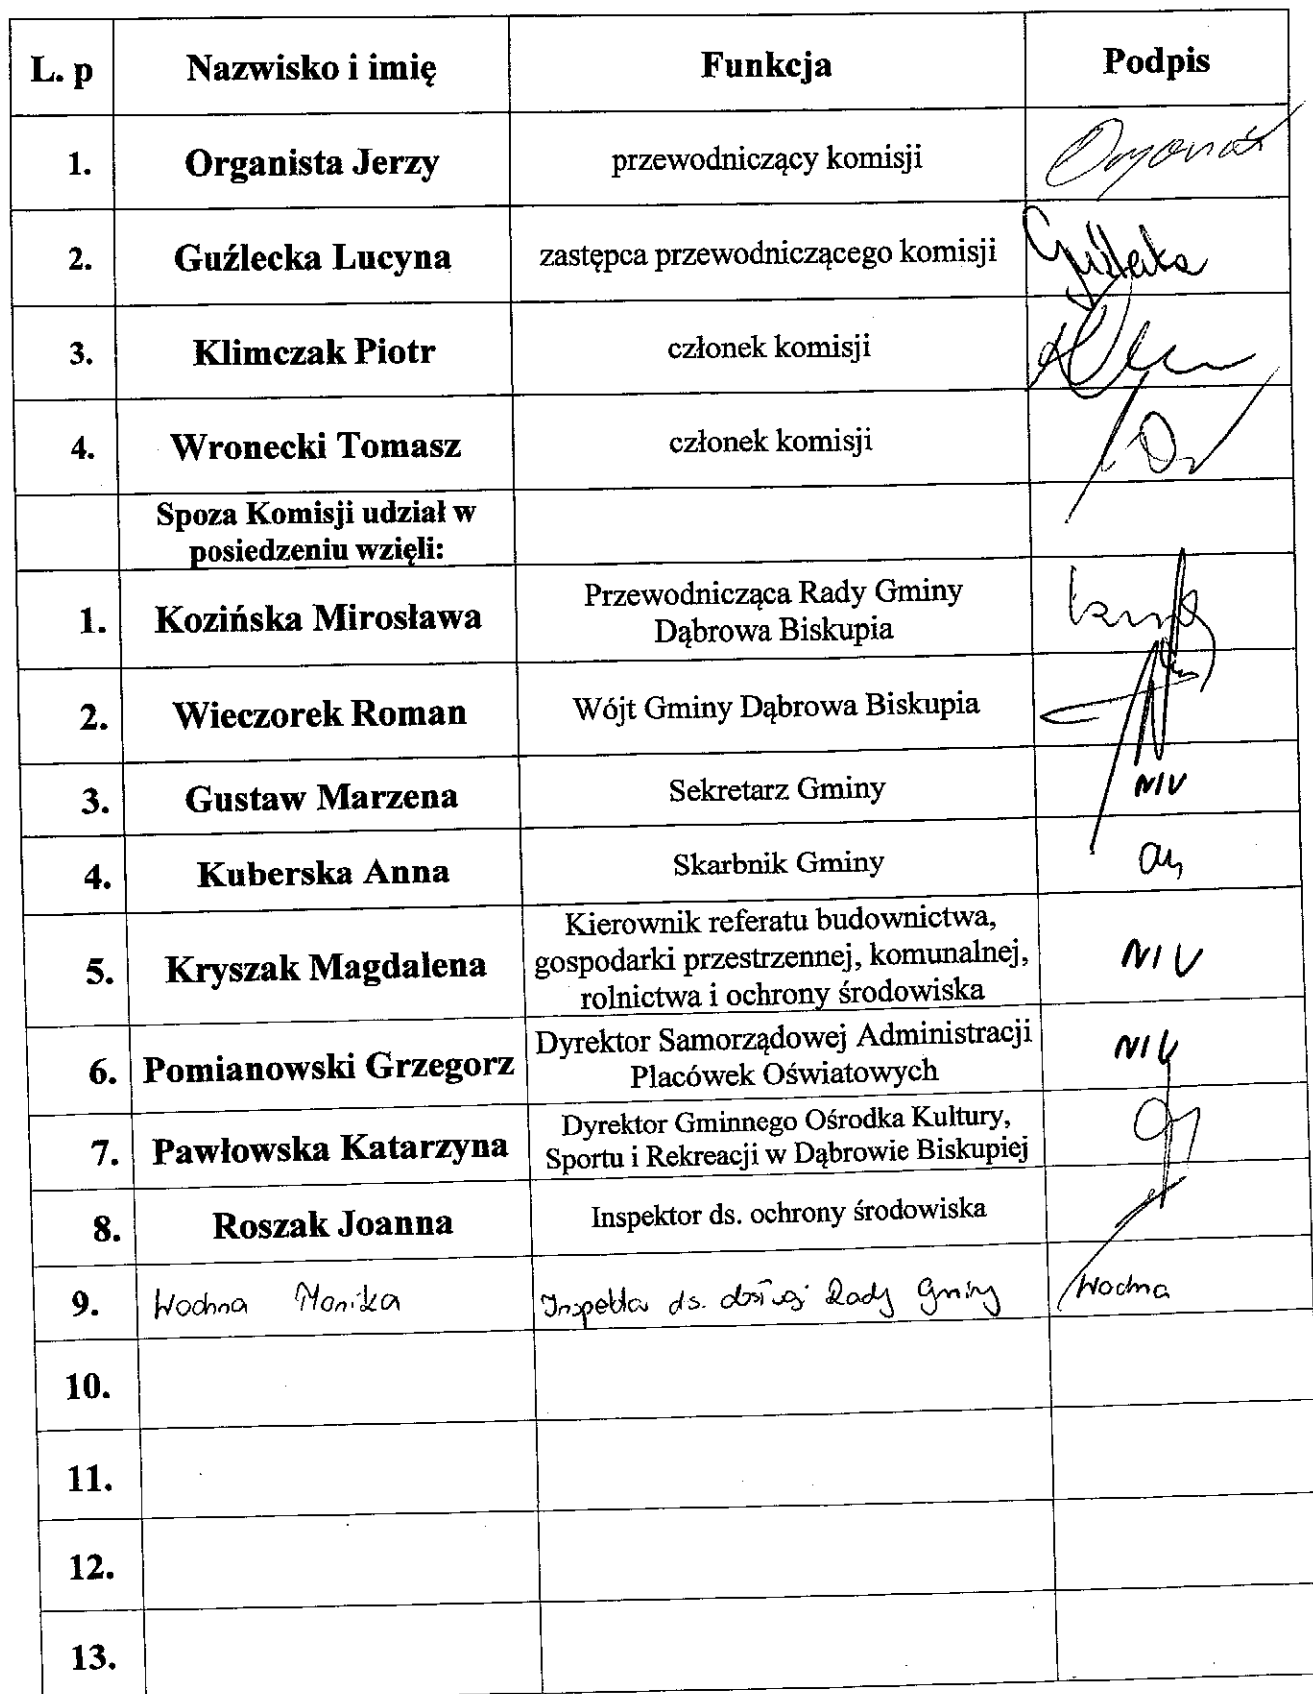 L. p Nazwisko i imię Funkcja Podpis
1. Organista Jerzy przewodniczący komisji
2. Guźlecka Lucyna zastępca przewodniczącego komisji Guźlecka
3. Klimczak Piotr członek komisji
4. Wronecki Tomasz członek komisji
Spoza Komisji udział w
posiedzeniu wzięli:
1. Kozińska Mirosława Przewodnicząca Rady Gminy
Dąbrowa Biskupia
2. Wieczorek Roman Wójt Gminy Dąbrowa Biskupia
3. Gustaw Marzena Sekretarz Gminy
4. Kuberska Anna Skarbnik Gminy
5. Kryszak Magdalena Kierownik referatu budownictwa,
gospodarki przestrzennej, komunalnej,
rolnictwa i ochrony środowiska
6. Pomianowski Grzegorz Dyrektor Samorządowej Administracji
Placówek Oświatowych
7. Pawłowska Katarzyna Dyrektor Gminnego Ośrodka Kultury,
Sportu i Rekreacji w Dąbrowie Biskupiej
8. Roszak Joanna Inspektor ds. ochrony środowiska
9. Wochna Monika Inspektor ds. obsługi Rady Gminy Wochna
10.
11.
12.
13.